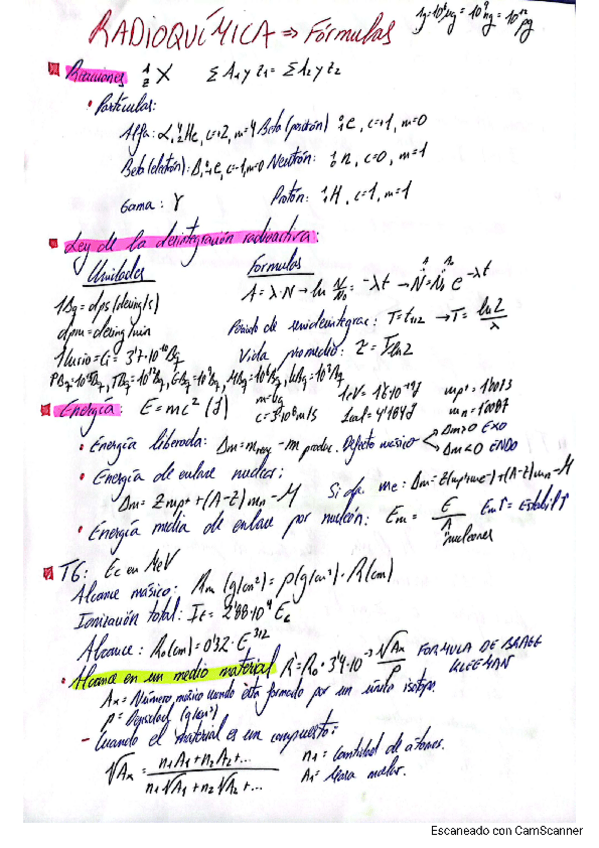 RADIOQUÍMICA ⇒ Fórmulas 1g=10⁶μg = 10⁹ng = 10¹²pg
Reacciones ᴬ_Z X ΣA₁ y Z₁ = ΣA₂ y Z₂
• Partículas:
Alfa: α, ⁴₂He, c=+2, m=4 Beta (positrón) ⁰₊₁e, c=+1, m=0
Beta (electrón): β, ⁰₋₁e, c=-1, m=0 Neutrón: ¹₀n, c=0, m=1
Gama: γ Protón: ¹₁H, c=1, m=1
Ley de la desintegración radioactiva:
Unidades Formulas
A = λ·N → ln N/N₀ = -λt → N = N₀ e^-λt
1Bq = dps (desing/s)
dpm = desing/min Periodo de semidesintegrac: T = t₁/₂ → T = ln2/λ
1Curio = Ci = 3'7·10¹⁰Bq Vida promedio: τ = T/ln2
PBq=10¹⁵Bq, TBq=10¹²Bq, GBq=10⁹Bq, MBq=10⁶Bq, kBq=10³Bq
Energía: E=mc² (J) m=kg c=3·10⁸m/s 1eV= 1'6·10⁻¹⁹J 1cal= 4'184J mp⁺= 1'0073 mn = 1'0087
• Energía liberada: Δm = m reag - m produc. Defecto másico Δm>0 EXO Δm<0 ENDO
• Energía de enlace nuclear:
Δm = Z mp⁺ + (A-Z) mn - M Si da me: Δm= Z(mp⁺+me⁻)+(A-Z)mn-M
• Energía media de enlace por nucleón: Em = E/A nucleones Em↑= Estabil↑
T6: Ec en MeV
Alcance másico: Rm (g/cm²) = ρ(g/cm³)·R(cm)
Ionización total: It = 2'88·10⁴ Ec
Alcance: R₀(cm) = 0'32·E^3/2
• Alcance en un medio material R = R₀·3'4·10⁻⁴ √Ax/ρ FORMULA DE BRAGG KLEEMAN
Ax = Número másico cuando está formado por un único isótopo.
ρ = Densidad (g/cm³)
- Cuando el material es un compuesto:
√Ax = n₁A₁+n₂A₂+... / n₁√A₁+n₂√A₂+... n₁ = Cantidad de átomos.
A₁= Masa molar.
Escaneado con CamScanner